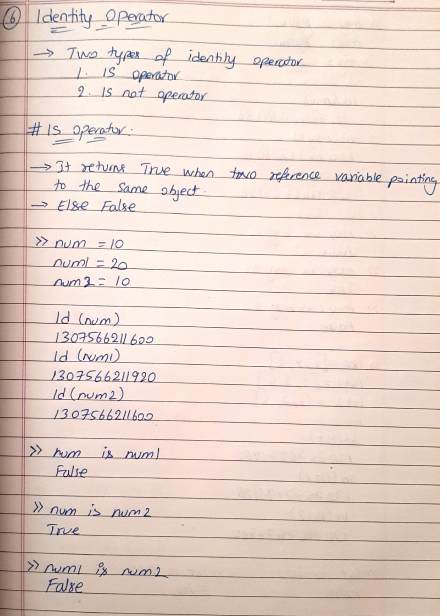 6 Identity Operator
→ Two types of identity operator
1. IS operator
2. IS not operator
# IS operator:
→ It returns True when two reference variable pointing
to the same object.
→ Else False
>> num = 10
num1 = 20
num2 = 10
Id (num)
1307566211600
Id (num1)
1307566211920
Id (num2)
1307566211600
>> num is num1
False
>> num is num2
True
>> num1 is num2
False